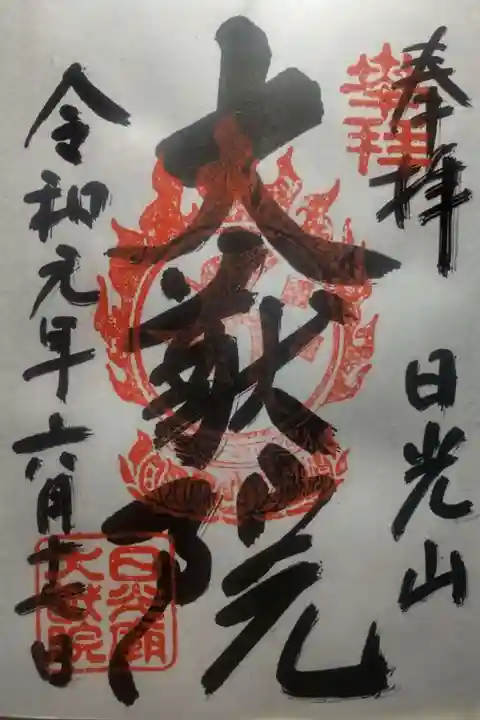 奉拝 日光山
大猷院
令和元年六月十七日
日光廟
大猷院